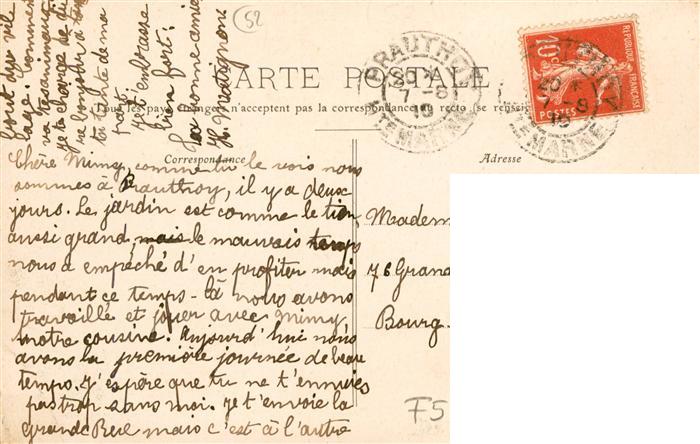 52
CARTE POSTALE
(Tous les pays étrangers n'acceptent pas la correspondance au recto (se renseigner
Correspondance
Adresse
PRAUTHOY
7-8
10
HTE MARNE
REPUBLIQUE FRANÇAISE
10c
POSTES
7-8
10
MARNE
Chère Mimy, comme tu le vois nous
sommes à Prauthoy, il y a deux
jours. Le jardin est comme le tien,
aussi grand, mais le mauvais temps
nous a empêché d'en profiter mais
pendant ce temps-là nous avons
travaillé et jouer avec Mimy
notre cousine. Aujourd'hui nous
avons la première journée de beau
temps. J'espère que tu ne t'ennuies
pas trop sans moi. Je t'envoie la
Grande Rue mais c'est à l'autre
bout du vil
lage. Comment
va ta
je te charge de di
re bonjour à ta
ton tante de ma
part.
Je t'embrasse
bien fort.
Ta bonne amie
H. Matignon
Madem
76 Grand
Bourg-
F5